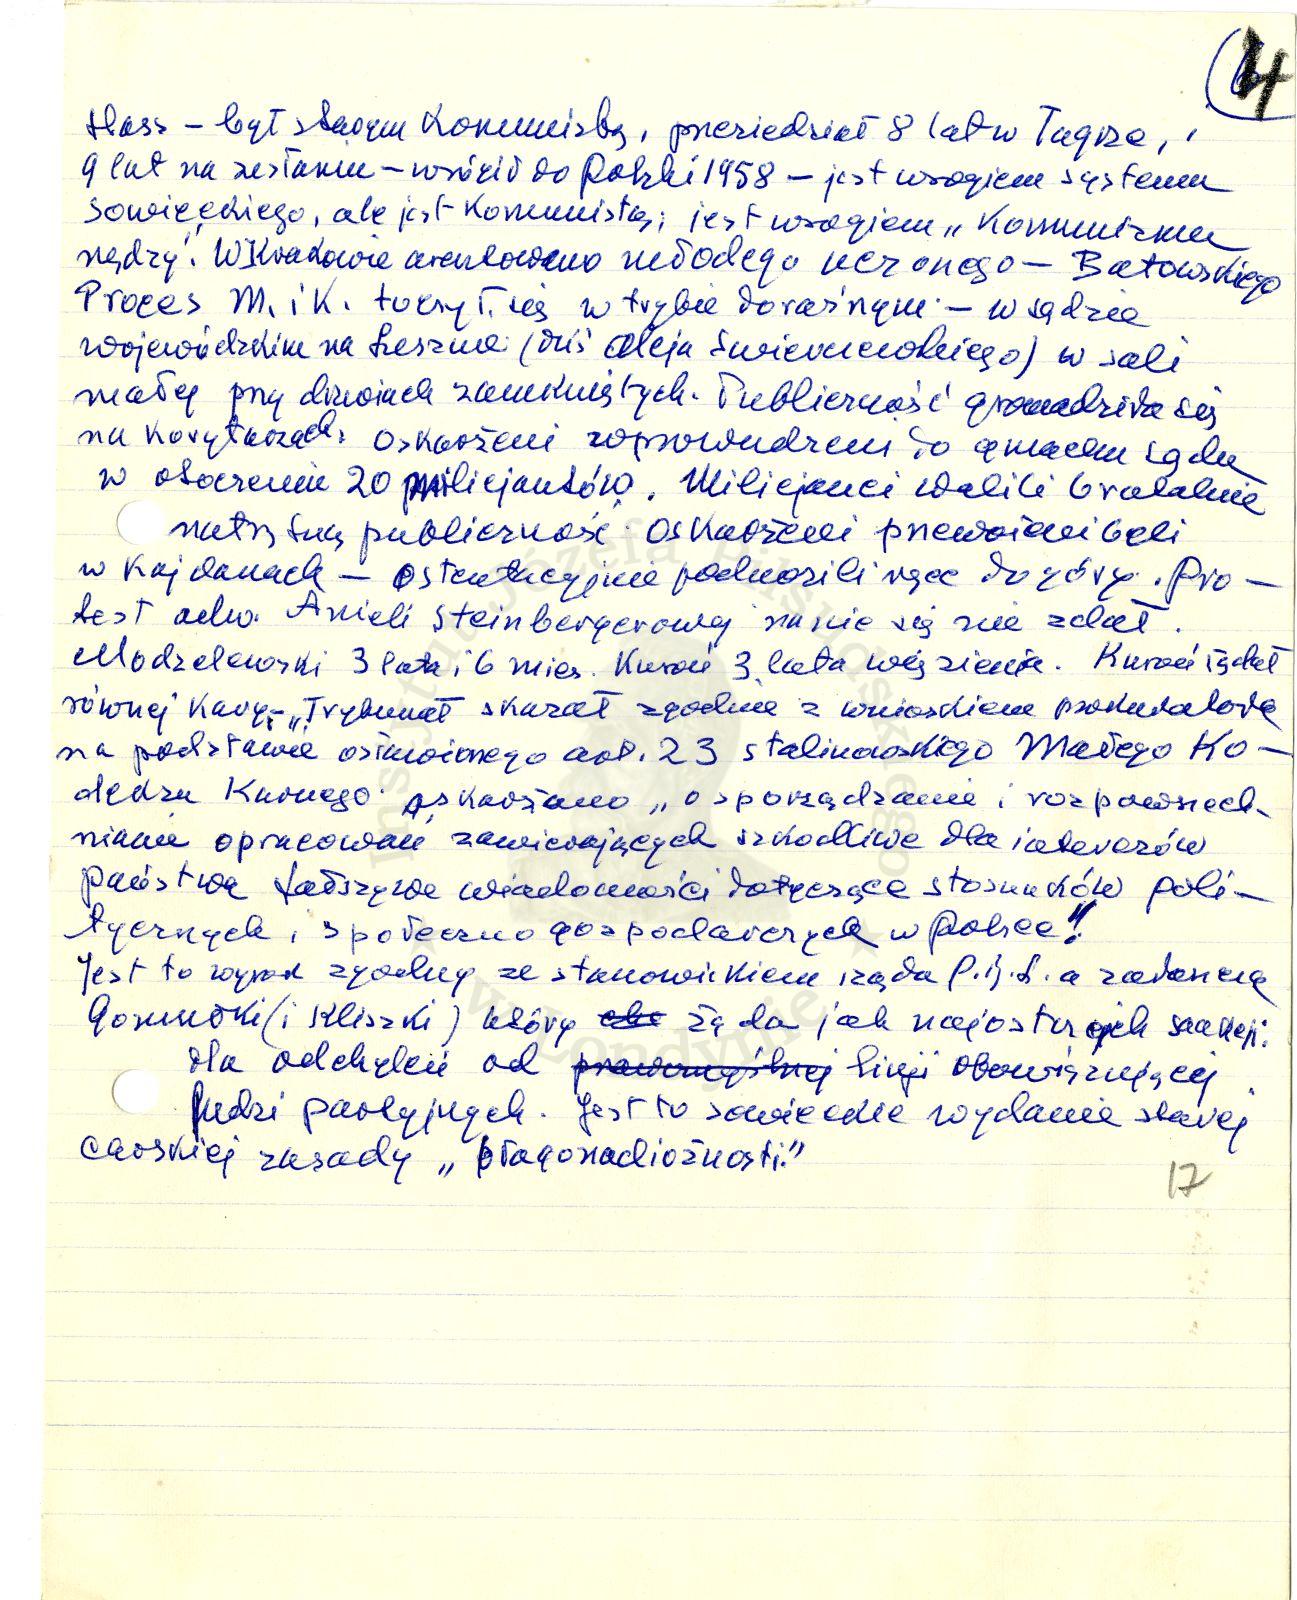 4
Hass – był starym komunistą, przesiedział 8 lat w łagrze, i
9 lat na zesłaniu – wrócił do Polski 1958 – jest wrogiem systemu
sowieckiego, ale jest komunistą; jest wrogiem „komunizmu
nędzy". W Krakowie aresztowano młodego uczonego – Batowskiego
Proces M. i K. toczył się w trybie doraźnym – w sądzie
wojewódzkim na Lesznie (dziś Aleja Świerczewskiego) w sali
małej przy drzwiach zamkniętych. Publiczność gromadziła się
na korytarzach. Oskarżeni wprowadzeni do gmachu sądu
w otoczeniu 20 milicjantów. Milicjanci walili brutalnie
natrętną publiczność. Oskarżeni przewoźeni byli
w kajdanach – ostentacyjnie podnosili ręce do góry. Pro–
test adw. Anieli Steinbergerowej na nic się nie zdał.
Modzelewski 3 lata i 6 mies. Kuroń 3 lata więzienia. Kuroń żądał
równej kary. – „Trybunał skazał zgodnie z wnioskiem prokuratora
na podstawie osławionego art. 23 stalinowskiego Małego Ko–
deksu Karnego oskarżano „o sporządzanie i rozpowszech-
nianie opracowań zawierających szkodliwe dla interesów
państwa fałszywe wiadomości dotyczące stosunków poli–
tycznych i społeczno gospodarczych w Polsce"!
Jest to wyrok zgodny ze stanowiskiem rządu P.R.L. a zwłaszcza
Gomułki (i Kliszki) który żąda jak najostrzejszych sankcji
dla odchyleń od prawomyślnej linji obowiązującej
ludzi partyjnych. Jest to sowieckie wydanie starej
carskiej zasady „błagonadiożnosti."
17
Instytut Józefa Piłsudskiego
w Londynie